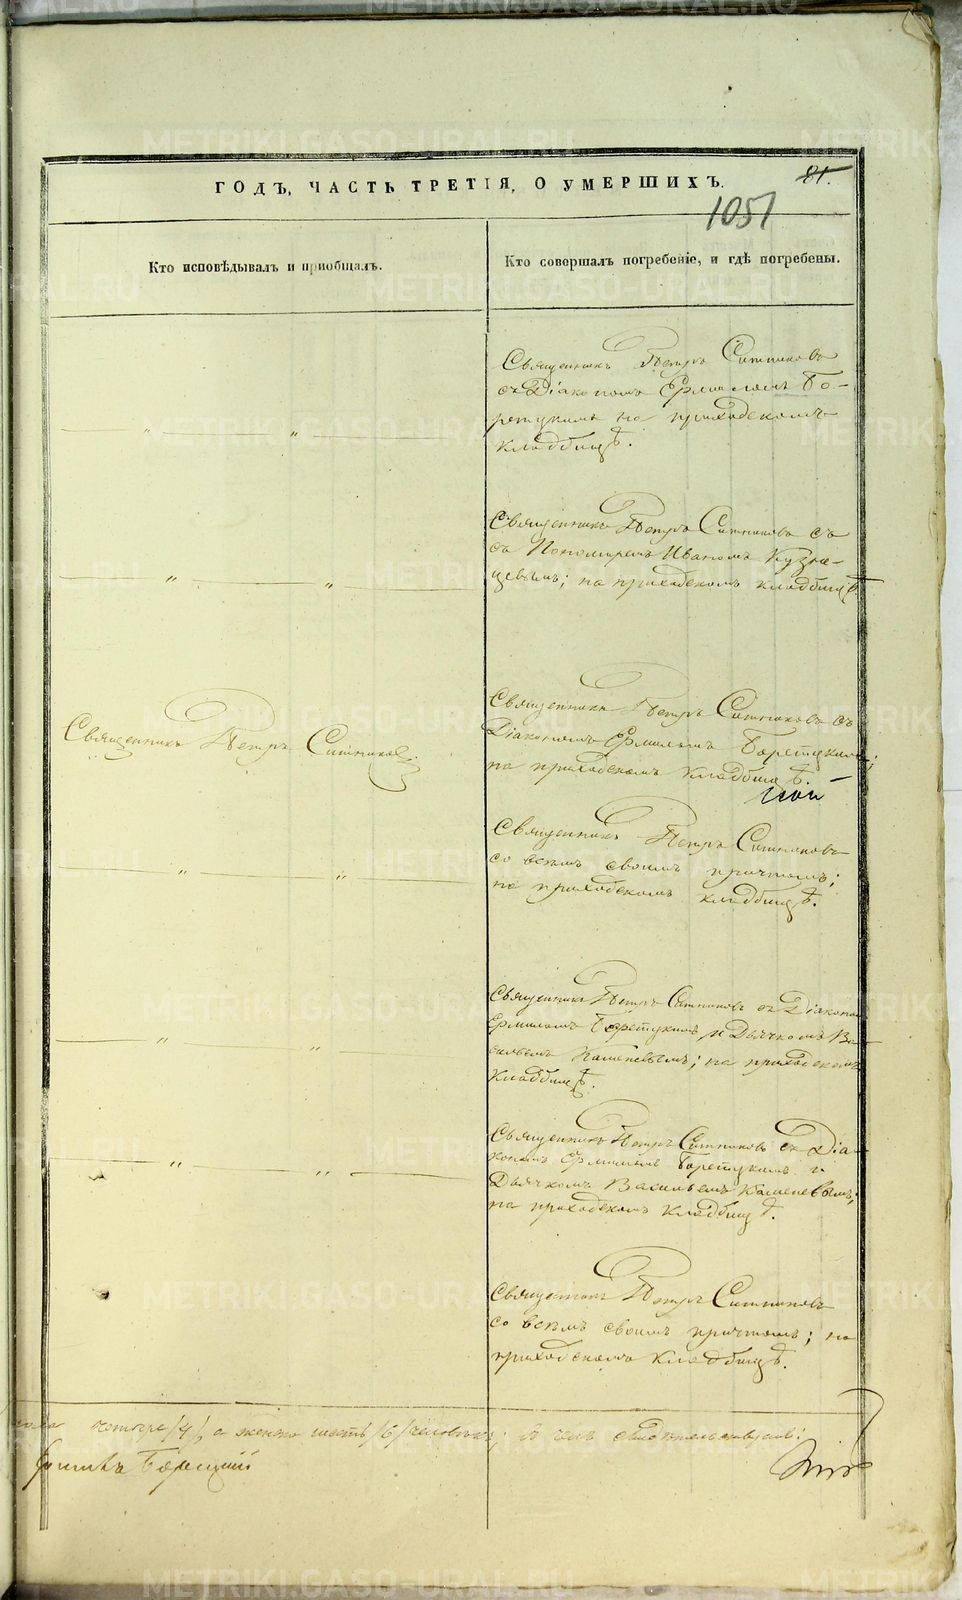 ГОДЪ, ЧАСТЬ ТРЕТІЯ, О УМЕРШИХЪ.
81.
1051
Кто исповѣдывалъ и пріобщалъ.
Кто совершалъ погребеніе, и гдѣ погребены.
Священникъ Петръ Ситниковъ
съ Діакономъ Ермиломъ Бо-
рецкимъ на приходскомъ
кладбищѣ.
Священникъ Петръ Ситниковъ съ
съ Пономаремъ Иваномъ Кузне-
цевымъ; на приходскомъ кладбищѣ.
Священникъ Петръ Ситниковъ
Священникъ Петръ Ситниковъ съ
Діакономъ Ермиломъ Борецкимъ;
на приходскомъ кладбищѣ.
Священникъ Петръ Ситниковъ
со всѣмъ своимъ причтомъ;
на приходскомъ кладбищѣ.
Священникъ Петръ Ситниковъ съ Діакономъ
Ермиломъ Борецкимъ и Дьячкомъ Ва-
сильемъ Каменевымъ; на приходскомъ
кладбищѣ.
Священникъ Петръ Ситниковъ съ Діа-
кономъ Ермиломъ Борецкимъ и
Дьячкомъ Васильемъ Каменевымъ;
на приходскомъ кладбищѣ.
Священникъ Петръ Ситниковъ
со всѣмъ своимъ причтомъ; на
приходскомъ кладбищѣ.
четыре /4/, а женска шесть /6/ человѣкъ; въ чемъ свидѣтельствуемъ:
Борецкій
METRIKI.GASO-URAL.RU